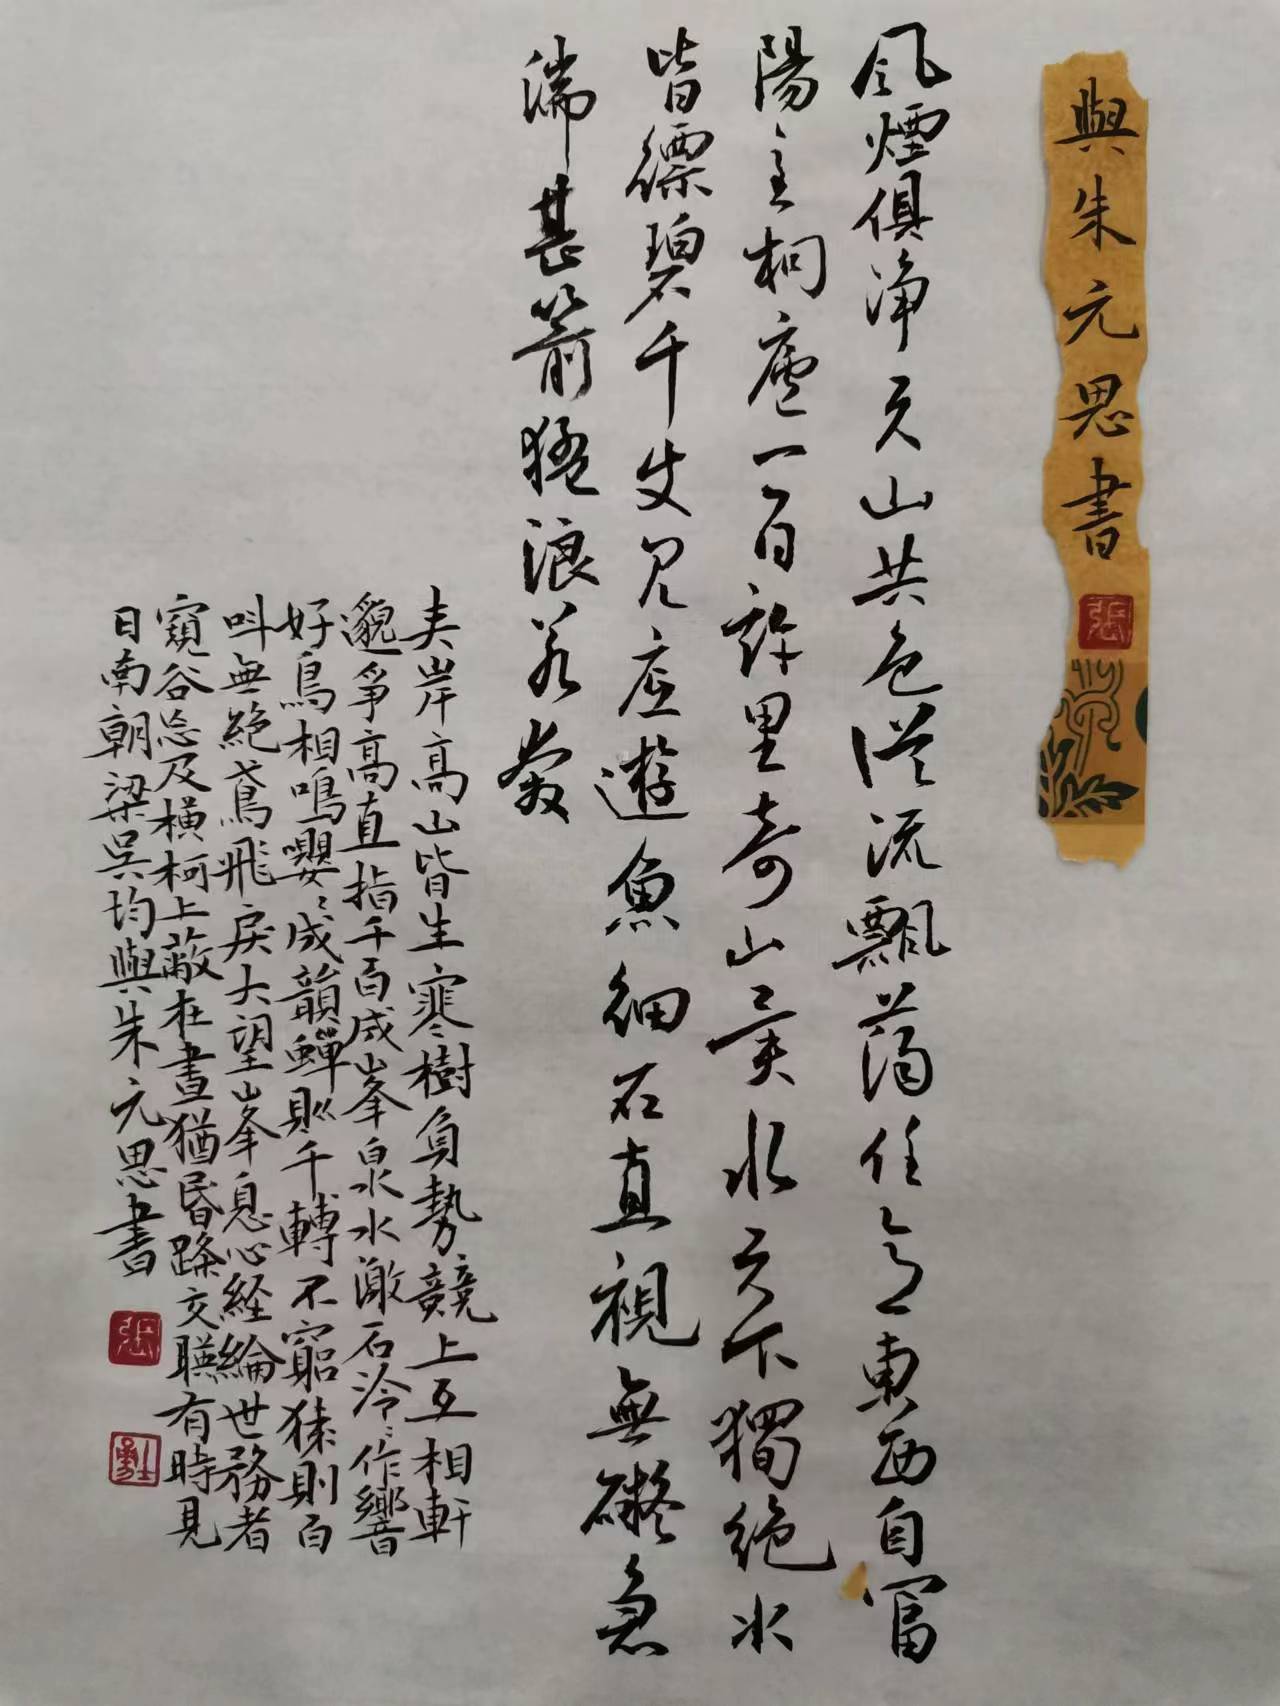 與朱元思書
張
風煙俱淨天山共色從流飄蕩任意東西自富
陽至桐廬一百許里奇山異水天下獨絕水
皆縹碧千丈見底遊魚細石直視無礙急
湍甚箭猛浪若奔
夹岸高山皆生寒樹負勢競上互相軒
邈爭高直指千百成峯泉水激石泠〻作響
好鳥相鳴嚶〻成韻蟬則千轉不窮猿則百
叫無絕鳶飛戾天望峯息心経綸世務者
窺谷忘反橫柯上蔽在晝猶昏疎交暎有時見
日南朝梁吳均與朱元思書
張